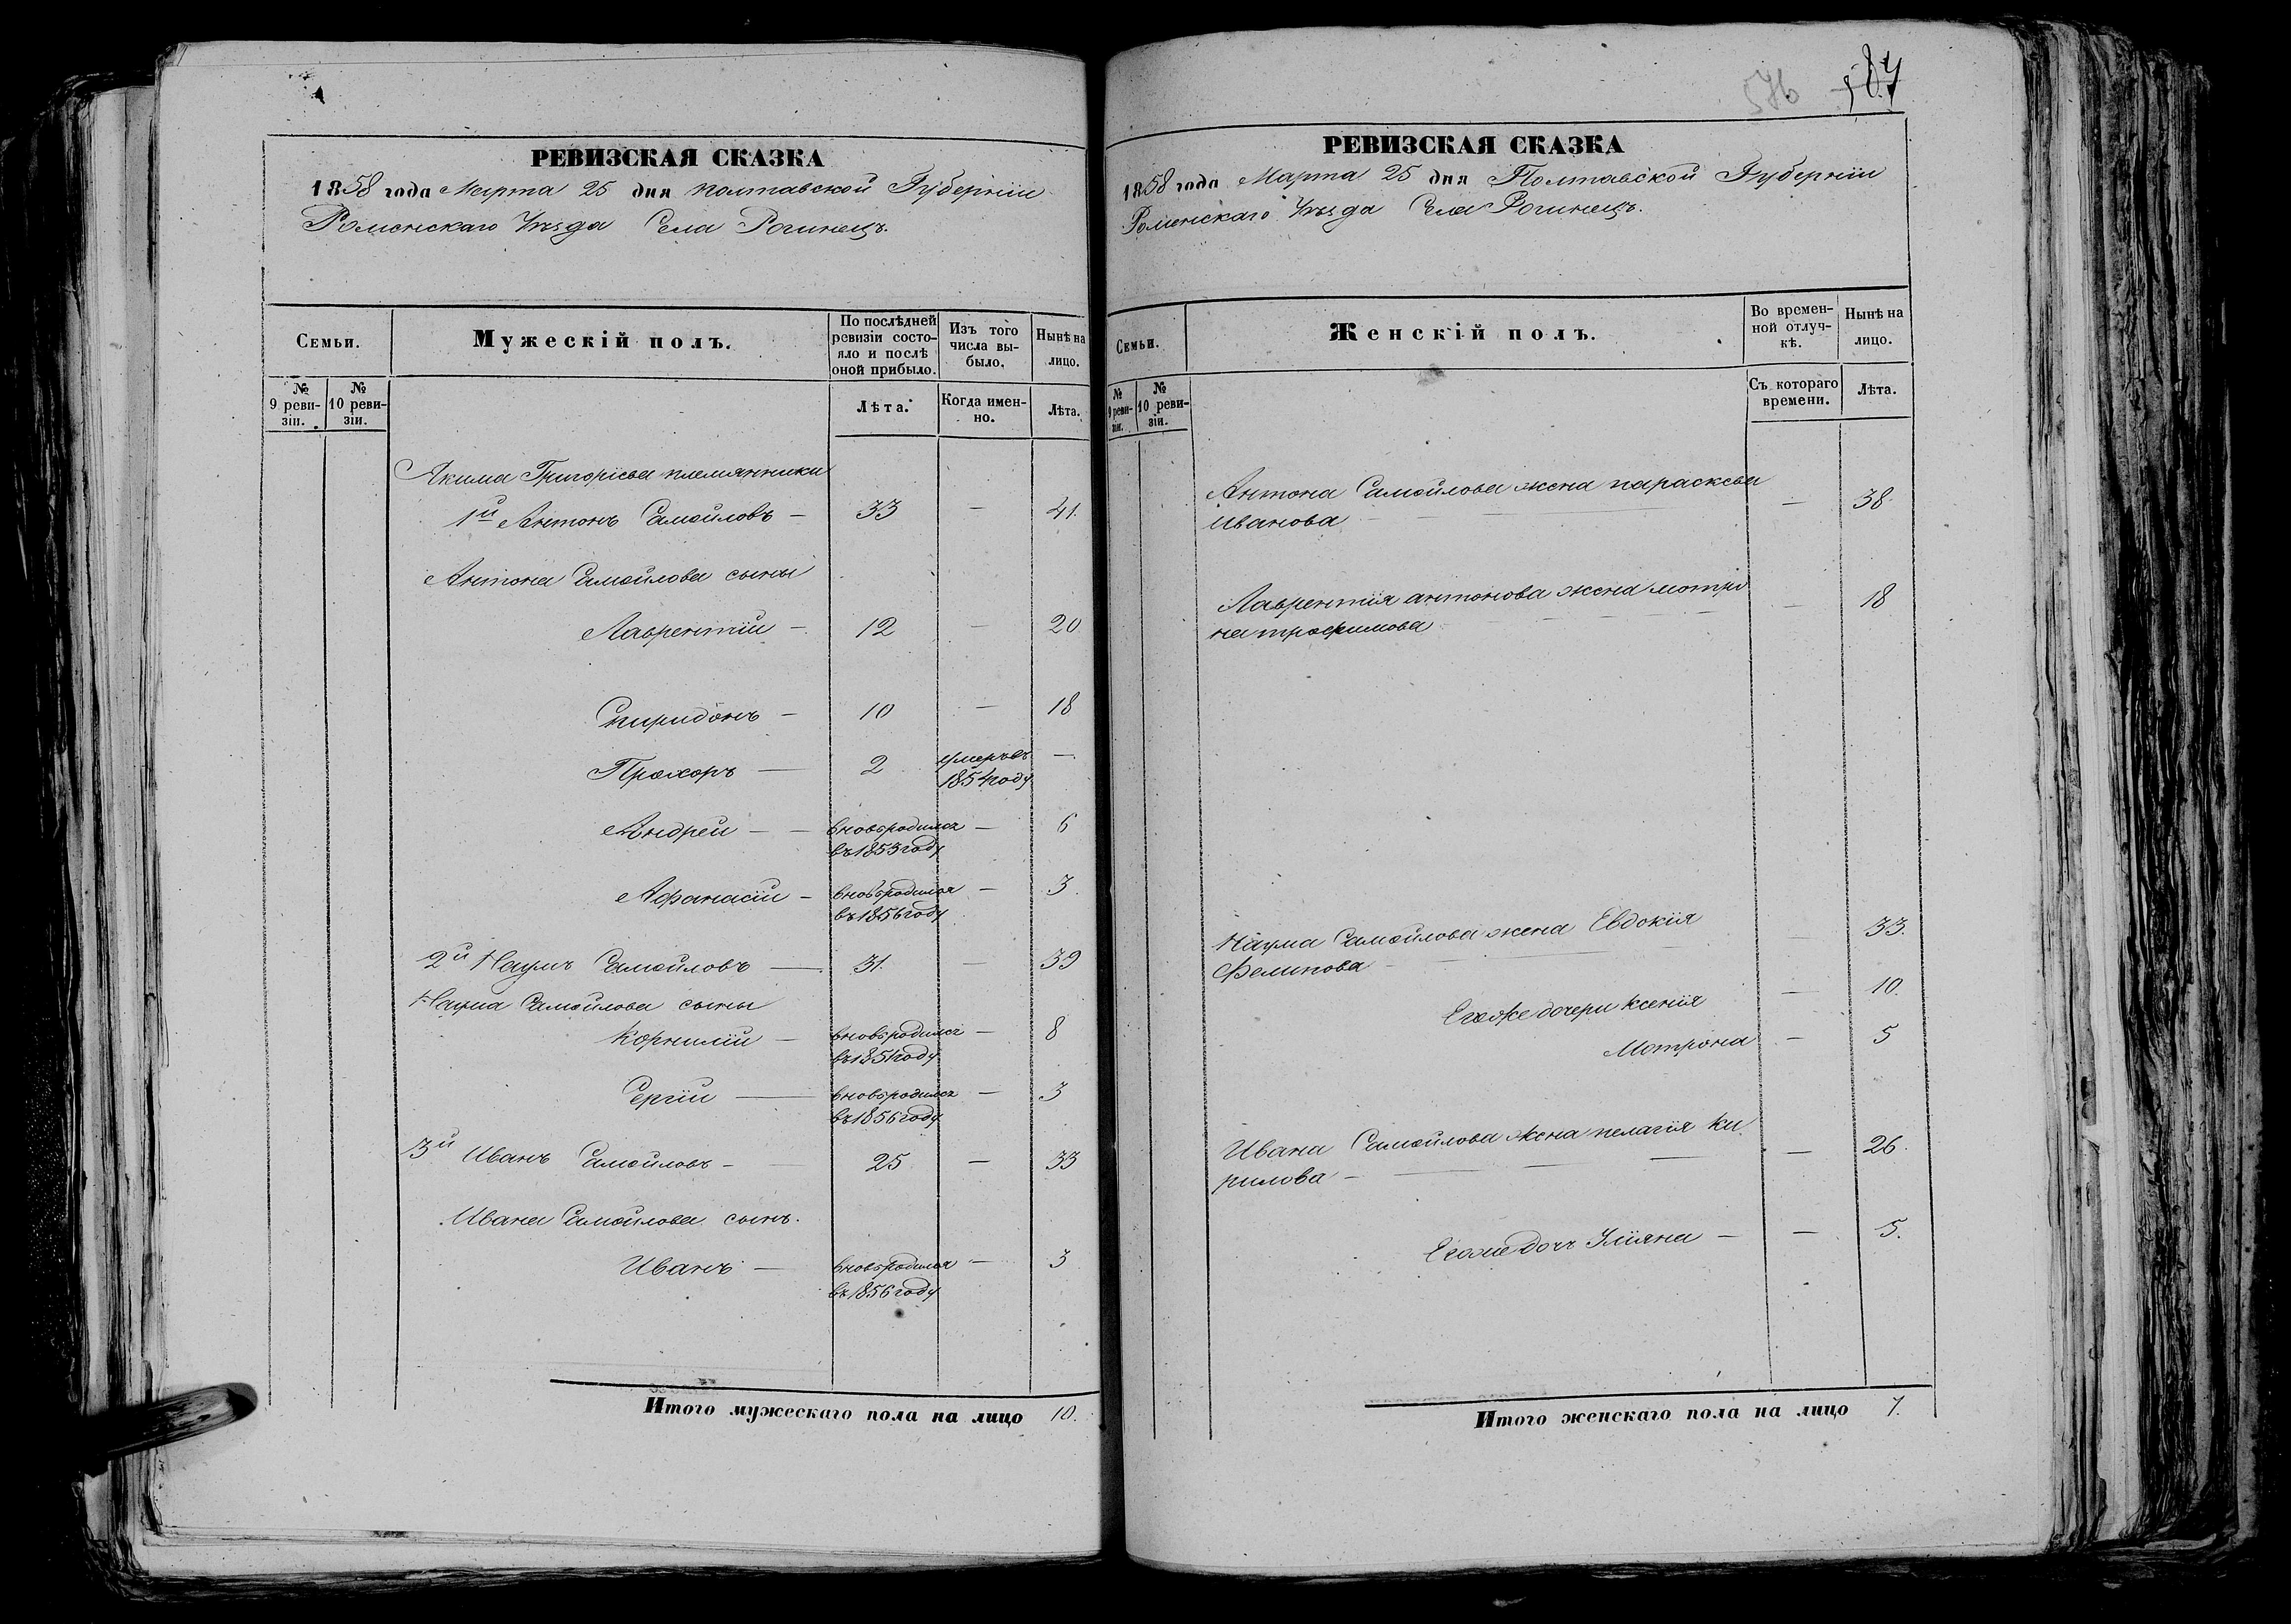 РЕВИЗСКАЯ СКАЗКА
1858 года Марта 25 дня полтавской Губерніи
Роменскаго Уѣзда Села Рогинецъ.
Семьи.
Мужескій полъ.
По послѣдней ревизіи состояло и послѣ оной прибыло.
Изъ того числа выбыло.
Нынѣ на лицо.
№ 9 ревизіи.
№ 10 ревизіи.
Лѣта.
Когда именно.
Лѣта.
Акима Григорьева племянники
1й Антонъ Самойловъ — 33 — 41.
Антона Самойлова сыны
Лаврентій — 12 — 20.
Спиридонъ — 10 — 18
Прохоръ — 2 умеръ въ —
1854 году
Андрей — вновь родился — 6
въ 1853 году
Афанасій — вновь родился — 3.
въ 1856 году
2й Наумъ Самойловъ — 31. — 39
Наума Самойлова сыны
Корнилій — вновь родился — 8
въ 1851 году
Сергій — вновь родился — 3
въ 1856 году
3й Иванъ Самойловъ — 25 — 33
Ивана Самойлова сынъ.
Иванъ — вновь родился — 3
въ 1856 году
Итого мужескаго пола на лицо 10.
576 587
РЕВИЗСКАЯ СКАЗКА
1858 года Марта 25 дня Полтавской Губерніи
Роменскаго Уѣзда Села Рогинецъ.
Семьи.
Женскій полъ.
Во временной отлучкѣ.
Нынѣ на лицо.
№ 9 ревизіи.
№ 10 ревизіи.
Съ котораго времени.
Лѣта.
Антона Самойлова жена параскева — 38.
Иванова
Лаврентія антонова жена мотро — 18
на трофимова
Наума Самойлова жена Евдокія — 33.
Фелипова
Его же дочери ксенія — 10.
Мотрона — 5
Ивана Самойлова жена пелагія ки — 26.
рилова —
Его же дочь Уліяна — — 5.
Итого женскаго пола на лицо 7.